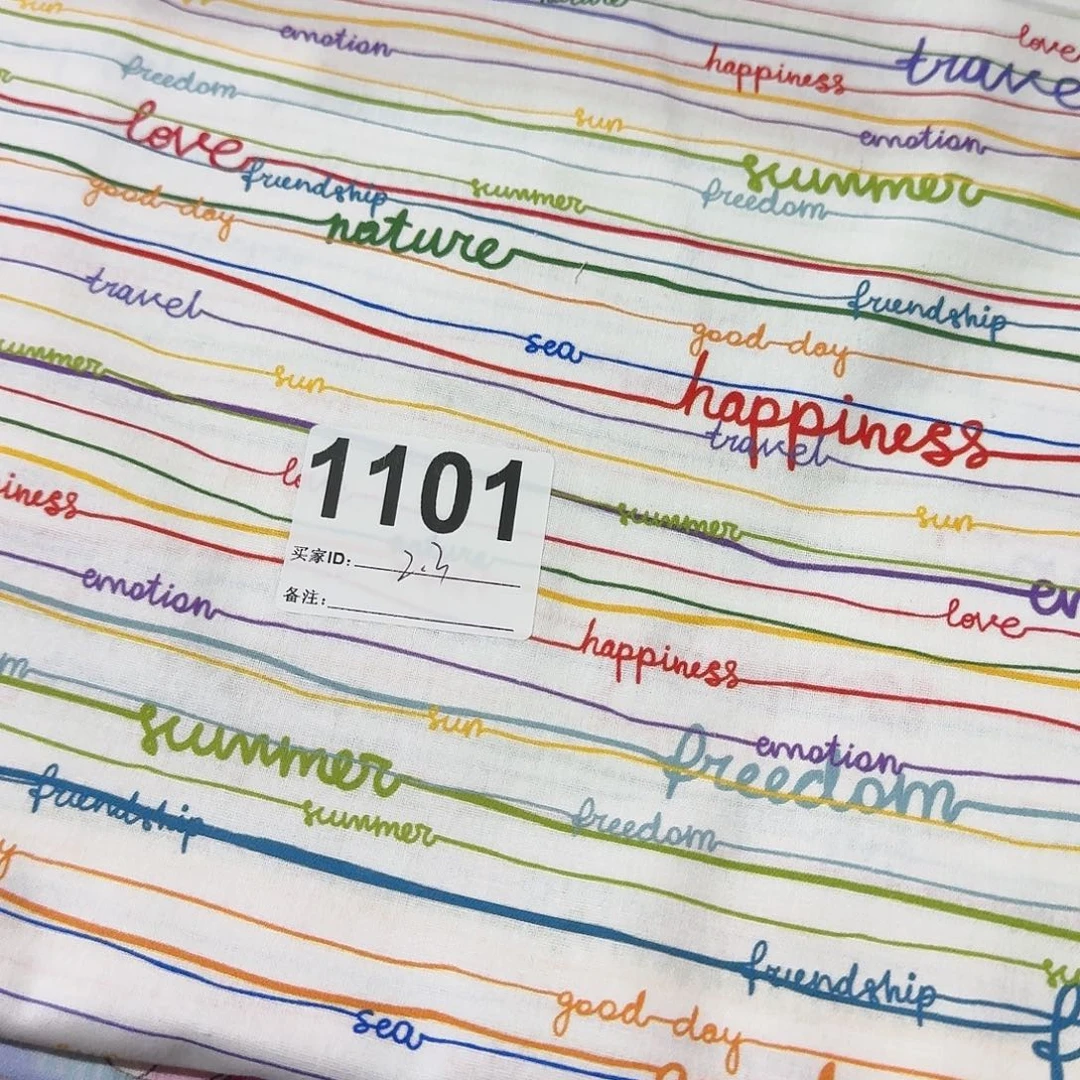 nature
sun
love
emotion
happiness
trave
freedom
sun
emotion
love
summer
friendship
summer
freedom
good day
nature
travel
friendship
sea
good day
summer
sun
happiness
travel
1101
summer
sun
iness
买家ID: 2.3
emotion
love
备注:
happiness
m
summer
sun
emotion
freedom
friendship
summer
freedom
y
friendship
su
good day
sea